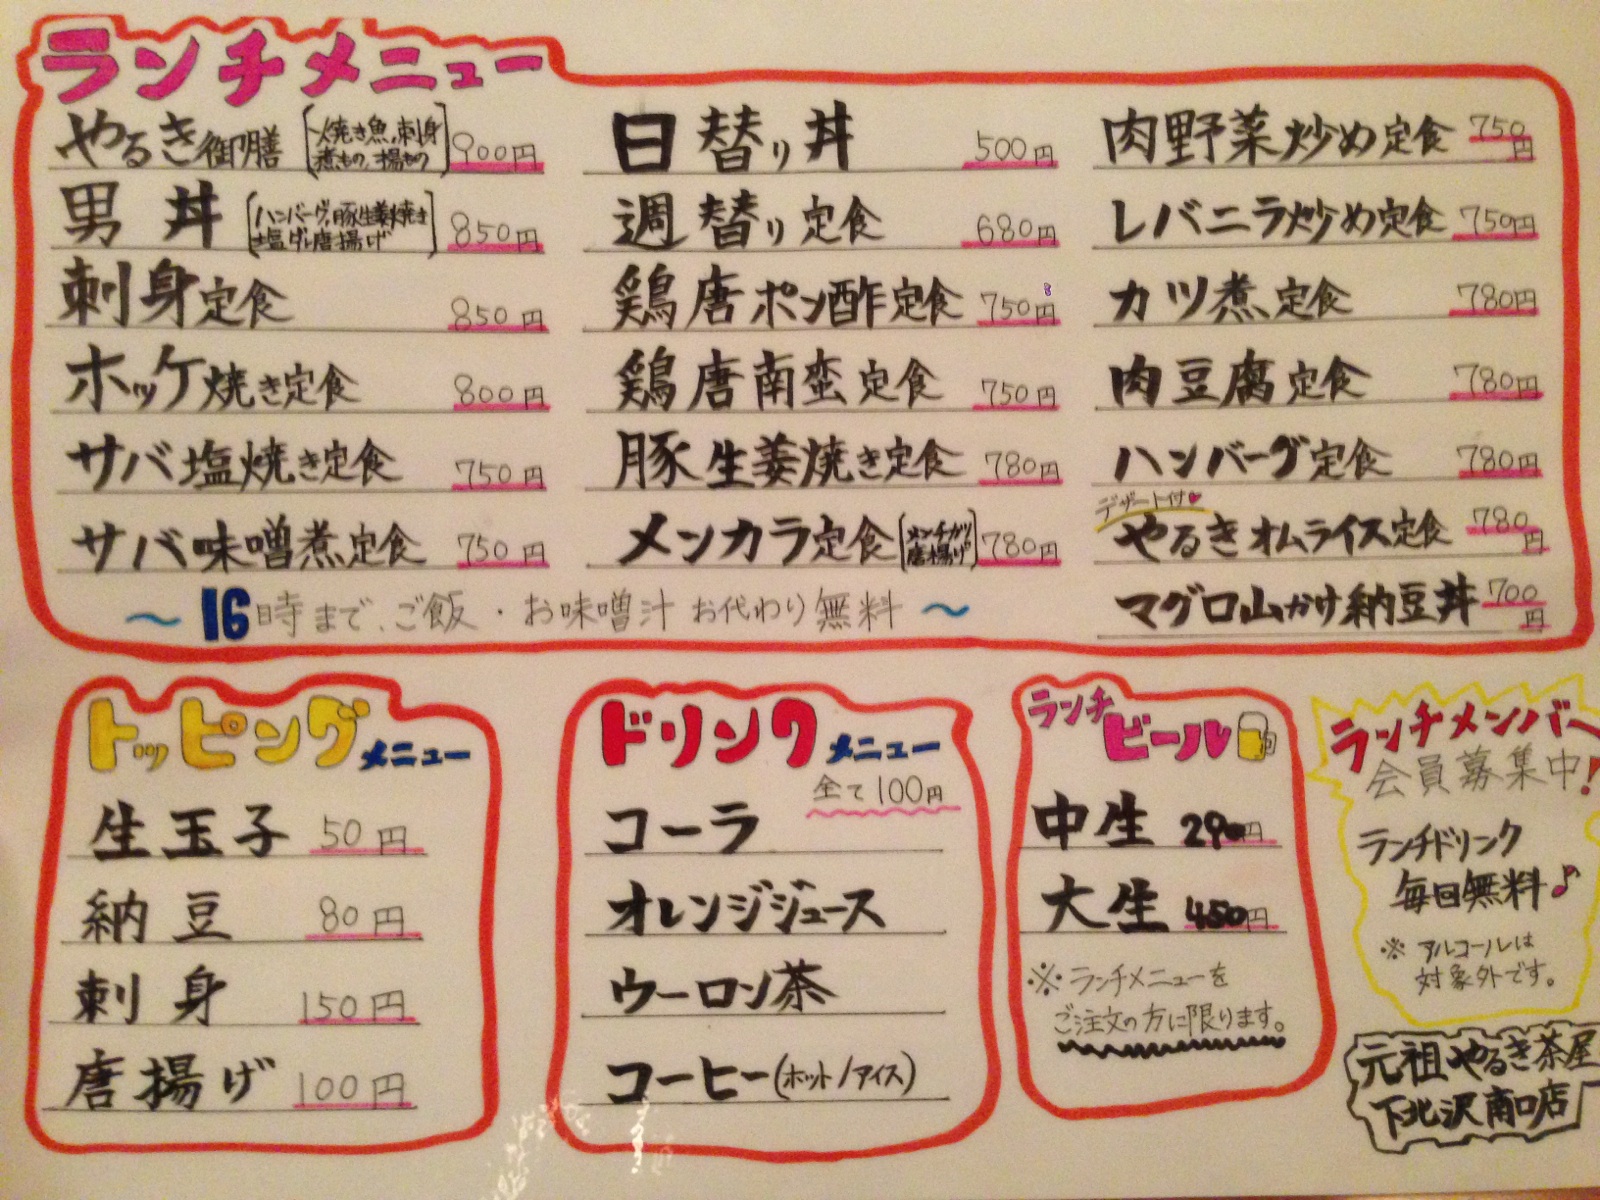 ランチメニュー
やるき御膳 (焼き魚,刺身 煮もの,揚もの) 900円
男丼 (ハンバーグ,豚生姜焼き 塩ダレ唐揚げ) 850円
刺身定食 850円
ホッケ焼き定食 800円
サバ塩焼き定食 750円
サバ味噌煮定食 750円
日替り丼 500円
週替り定食 680円
鶏唐ポン酢定食 750円
鶏唐南蛮定食 750円
豚生姜焼き定食 780円
メンカラ定食 (メンチカツ 唐揚げ) 780円
肉野菜炒め定食 750円
レバニラ炒め定食 750円
カツ煮定食 780円
肉豆腐定食 780円
ハンバーグ定食 780円
デザート付♥
やるきオムライス定食 780円
マグロ山かけ納豆丼 700円
〜16時まで、ご飯・お味噌汁 お代わり無料〜
トッピングメニュー
生玉子 50円
納豆 80円
刺身 150円
唐揚げ 100円
ドリンクメニュー
全て100円
コーラ
オレンジジュース
ウーロン茶
コーヒー(ホット/アイス)
ランチ
ビール
中生 290円
大生 450円
※ランチメニューを
ご注文の方に限ります。
ランチメンバー
会員募集中!
ランチドリンク
毎回無料♪
※アルコールは
対象外です。
元祖やるき茶屋
下北沢南口店